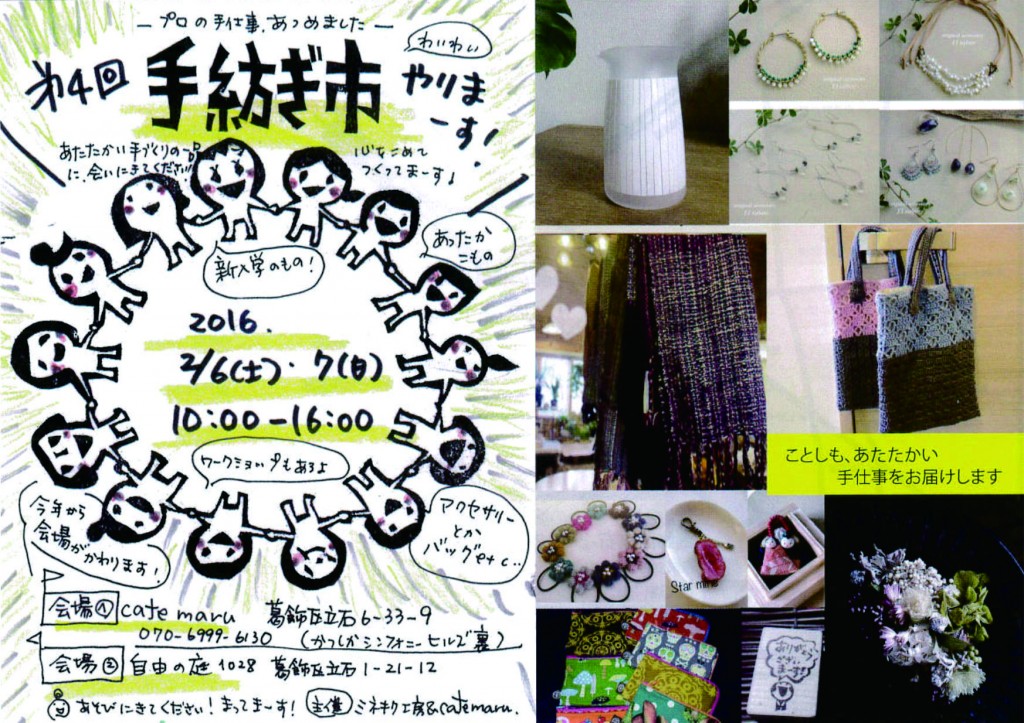 ープロの手仕事、あつめましたー
第4回
手紡ぎ市
わいわい
やりま
ーす!
あたたかい手づくりの一品
に、会いにきてください!
心をこめて
つくってまーす♪
新入学のもの!
あったか
こもの
2016.
2/6(土)・7(日)
10:00-16:00
ワークショップもあるよ
今年から
会場が
かわります!
アクセサリー
とか
バッグetc..
会場① cafe maru 葛飾区立石6-33-9
070-6999-6130 (かつしかシンフォニーヒルズ裏)
会場② 自由の庭1028 葛飾区立石1-21-12
あそびにきてください!まってまーす! 主催 ミネキク工房&cafemaru.
original accessory
original accessory
original accessory
original accessory
ことしも、あたたかい
手仕事をお届けします
Star mine
ありがとう
ござい
まーす!